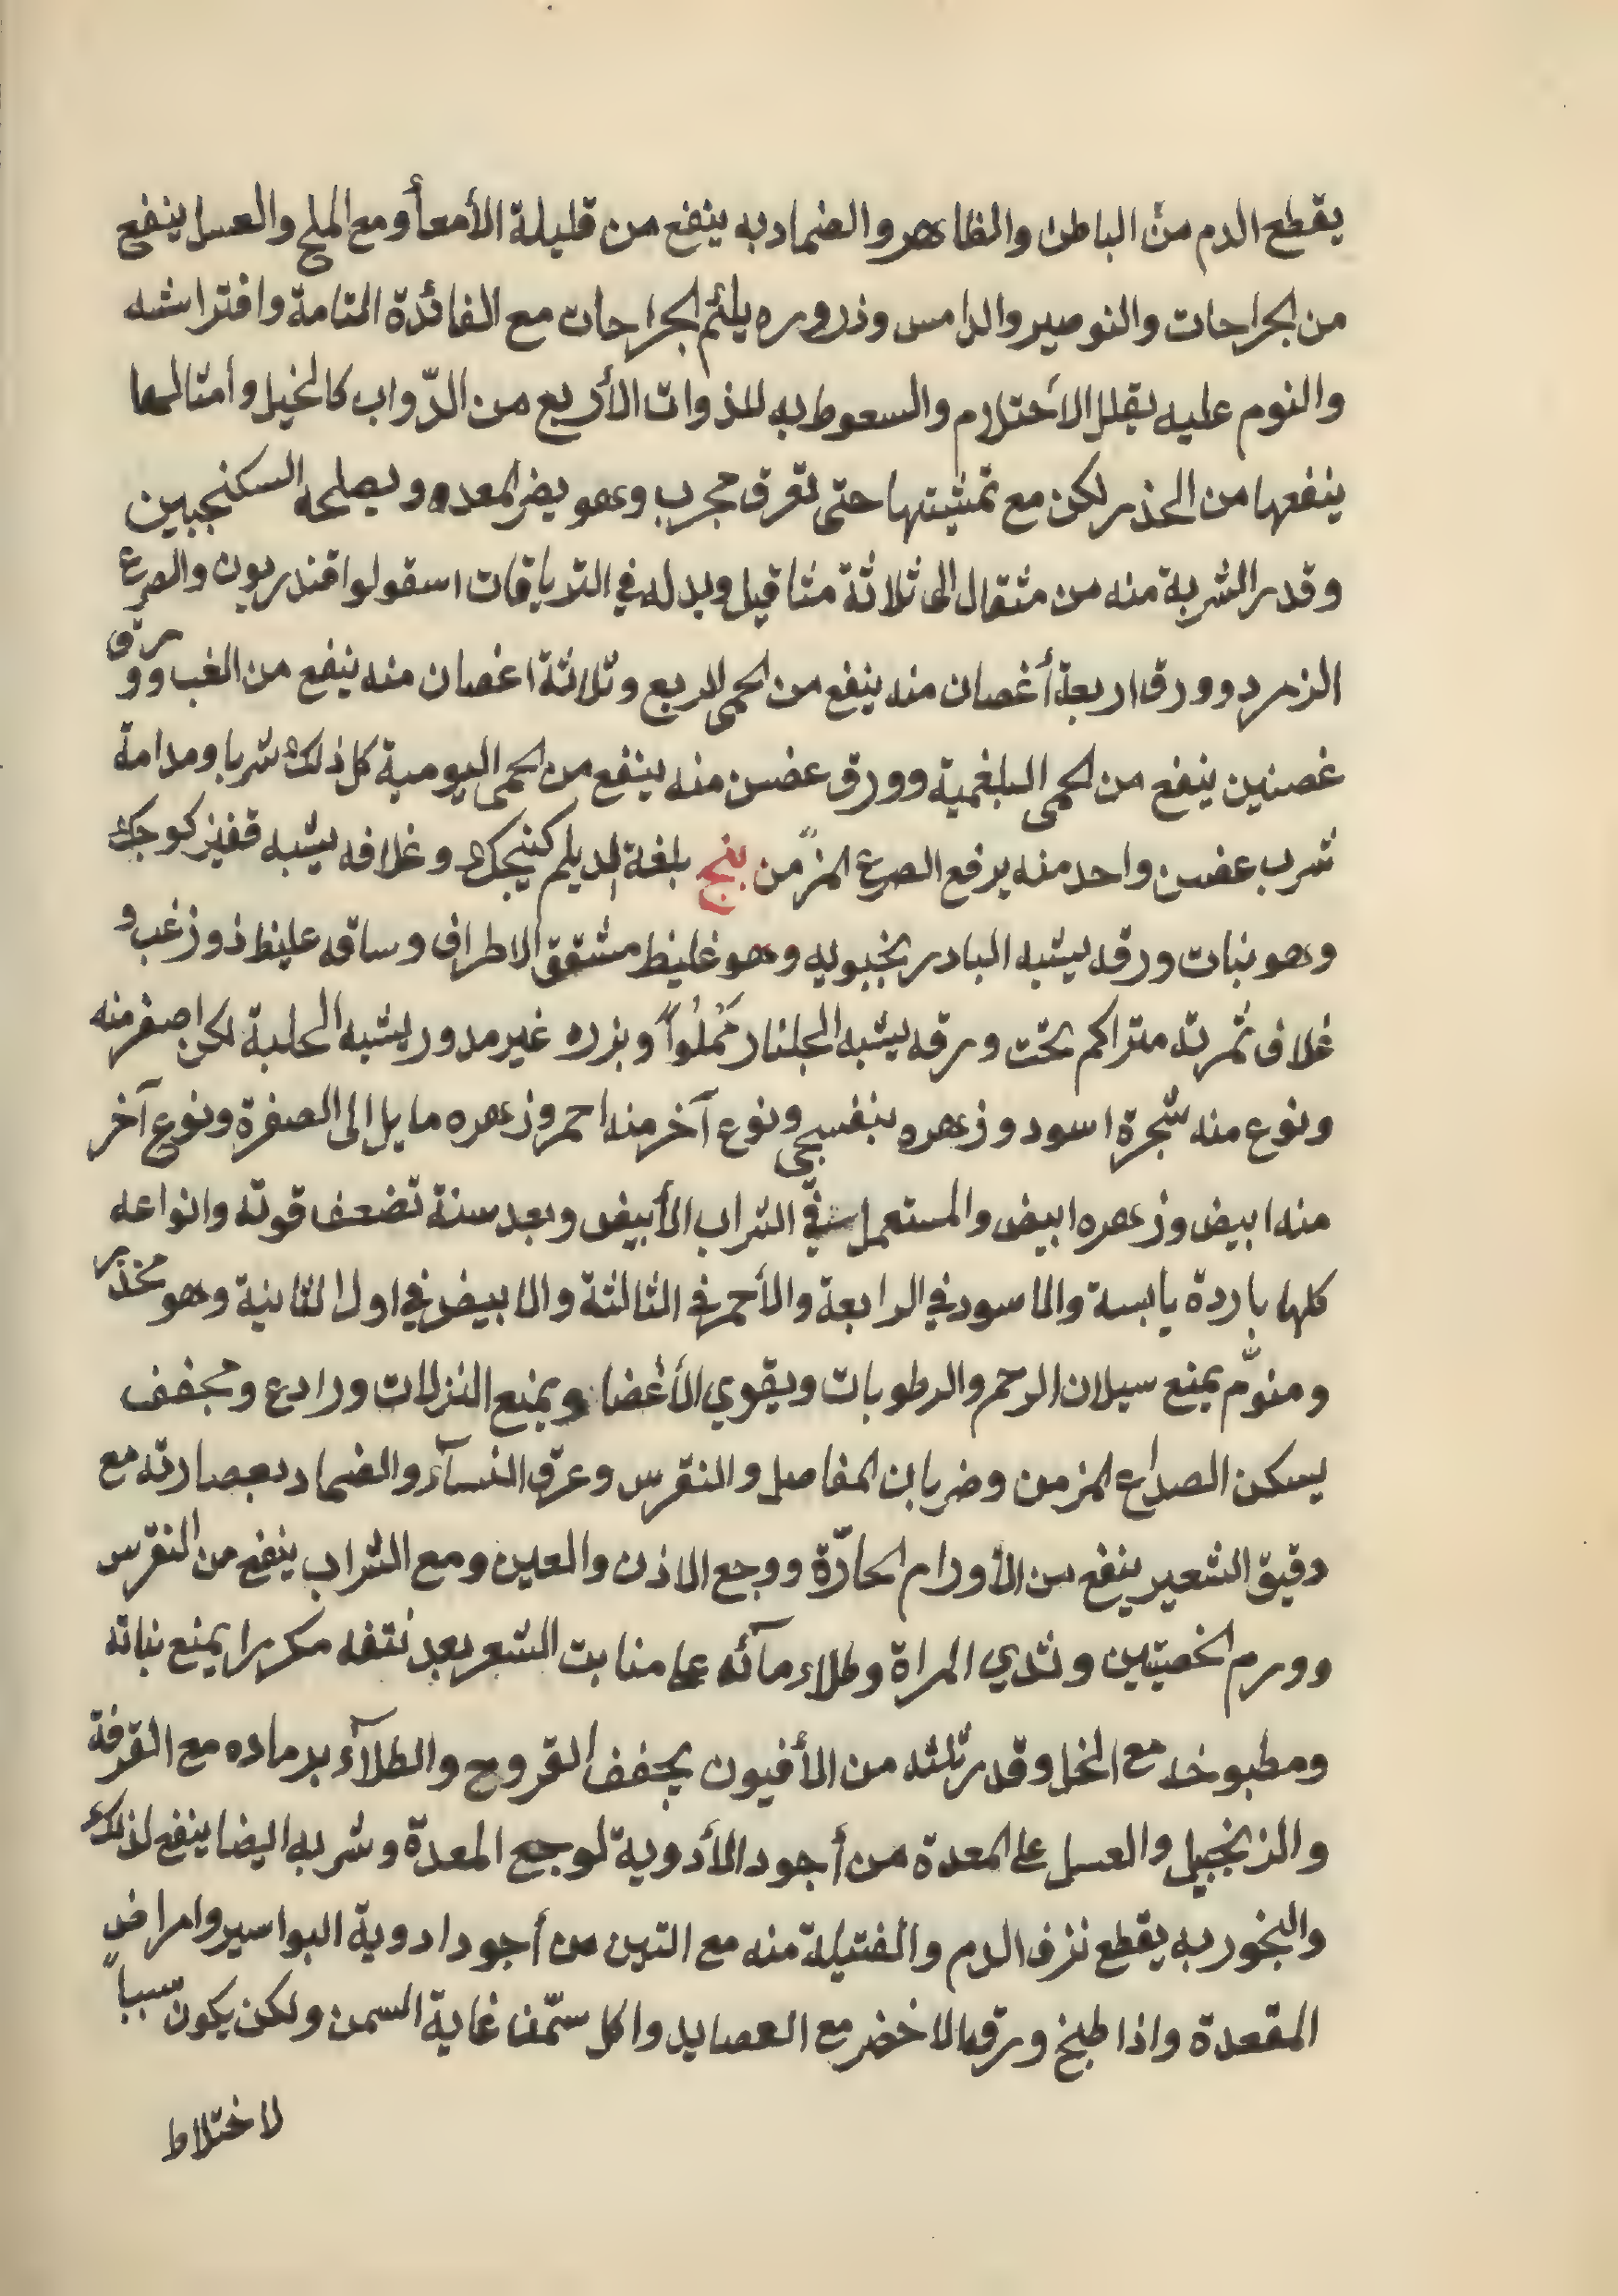 يقطع الدم من الباطن والظاهر والضماد به ينفع من قليلة الأمعأ ومع الملح والعسل ينفع
من الجراحات والنوصير والدامس وذروره يلئم الجراحات مع الفائدة التامة وافتراشه
والنوم عليه يقلل الأحتلام والسعوط به للذوات الأربع من الدّواب كالخيل وأمثالها
ينفعها من الخدر لكن مع تمشيتها حتى تعرق مجرب وهو يضر المعده ويصلحه السكنجبين
وقدر الشربة منه من مثقال الى ثلاثة مثاقيل وبدله في الترياقات اسقولوا قندريون والصرع
الزمرد وورق اربعة أغصان منه ينفع من الحمى الربع وثلاثة اغصان منه ينفع من الغب وورق
غصنين ينفع من الحمى البلغمية وورق غصن منه ينفع من الحمى اليومية كل ذلك شربا ومدامة
شرب غصن واحد منه يرفع الصرع المزمن بنج بلغة الديلم كنيجك وغلافه يشبه قفيز كوجك
وهو نبات ورقه يشبه البادرنجبويه وهو غليظ مشقق الاطراف وساقه غليظ ذو زغب و
غلاف ثمرته متراكم تحت ورقه يشبه الجلنار مملوأً وبزره غير مدور يشبه الحلبة لكن اصغر منه
ونوع منه شجرة اسود وزهره بنفسجي ونوع آخر منه احمر وزهره مايل الى الصفرة ونوع آخر
منه ابيض وزهره ابيض والمستعمل في الشراب الأبيض وبعد سنة تضعف قوته وانواعه
كلها باردة يابسة والاسود في الرابعة والأحمر في الثالثة والابيض في اول الثانية وهو مخدر
ومنوّم يمنع سيلان الرحم والرطوبات ويقوي الأعضا ويمنع النزلات ورادع ومجفف
يسكن الصداع المزمن وضربان المفاصل والنقرس وعرق النسآء والضماد بعصارته مع
دقيق الشعير ينفع من الأورام الحارّة ووجع الاذن والعين ومع الشراب ينفع من النقرس
وورم الخصيتين وثدي المراة وطلاء مآئه على منابت الشعر بعد نتفه مكررا يمنع نباته
ومطبوخه مع الخل وقدر ثلثه من الأفيون يجفف القروح والطلآء برماده مع القرفة
والزنجبيل والعسل على المعدة من أجود الأدوية لوجع المعدة وشربه ايضا ينفع لذلك
والبخور به يقطع نزف الدم والفتيلة منه مع التين من أجود ادوية البواسير وامراض
المقعدة واذا طبخ ورقه الاخضر مع العصايد واكل سمّن غاية السمن ولكن يكون سبباً
لاختلاط